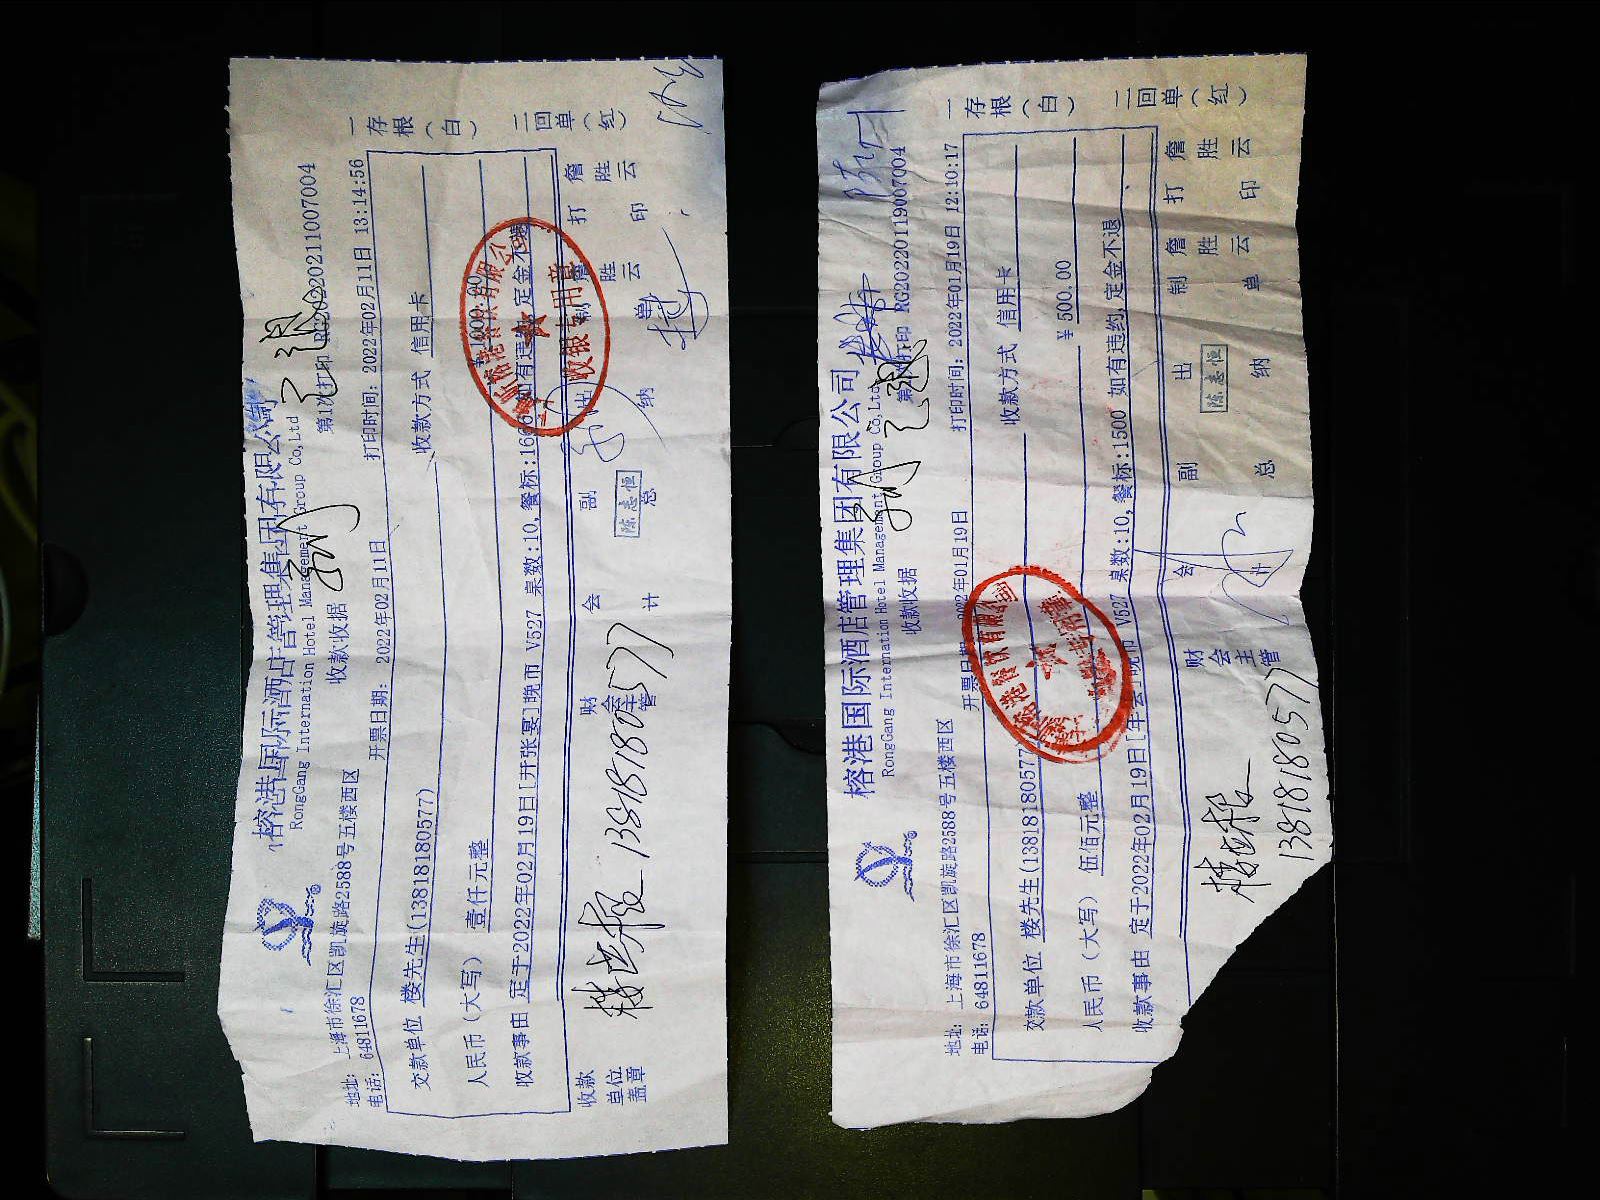 榕港国际酒店管理集团有限公司
RongGang International Hotel Management Group Co,Ltd
收款收据
第1次打印 RG20220211007004
地址: 上海市徐汇区凯旋路2588号五楼西区
电话: 64811678
开票日期: 2022年02月11日
打印时间: 2022年02月11日 13:14:56
交款单位 楼先生(13818180577)
收款方式 信用卡
人民币（大写） 壹仟元整
¥1000.00
收款事由 定于2022年02月19日[开张宴]晚市 V527 桌数:10,餐标:1666 如有违约,定金不退
收款单位盖章
财会主管
会计
副总
陈志恒
出纳
制单 詹胜云
打印 詹胜云
一存根（白）
二回单（红）
收银专用章
13818180577
榕港国际酒店管理集团有限公司
RongGang International Hotel Management Group Co,Ltd
收款收据
打印 RG20220119007004
地址: 上海市徐汇区凯旋路2588号五楼西区
电话: 64811678
开票日期 2022年01月19日
打印时间: 2022年01月19日 12:10:17
交款单位 楼先生(13818180577)
收款方式 信用卡
人民币（大写） 伍佰元整
¥500.00
收款事由 定于2022年02月19日[年会]晚市 V527 桌数:10,餐标:1500 如有违约,定金不退
财会主管
会计
副总
出纳
陈志恒
制单 詹胜云
打印 詹胜云
一存根（白）
二回单（红）
13818180577